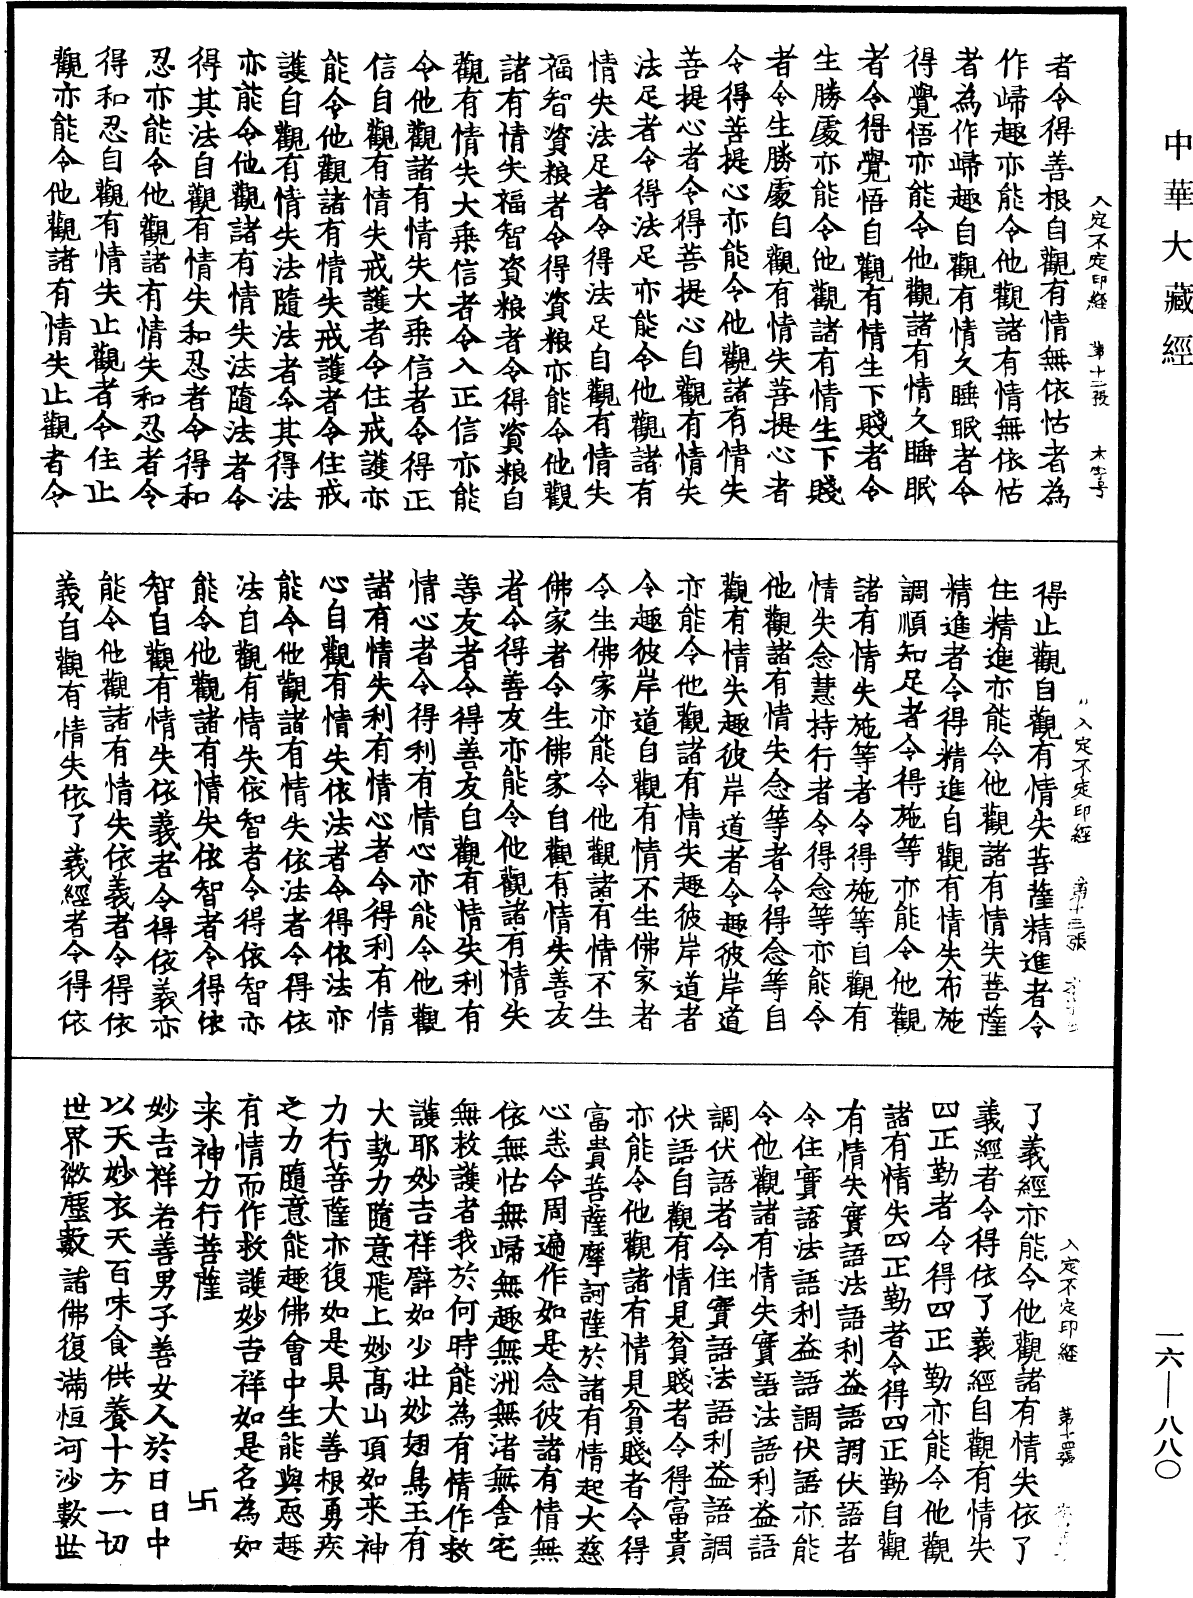 中華大藏經
入定不定印經 第十二張 木字号
者令得善根自觀有情無依怙者為
作歸趣亦能令他觀諸有情無依怙
者為作歸趣自觀有情久睡眠者令
得覺悟亦能令他觀諸有情久睡眠
者令得覺悟自觀有情生下賤者令
生勝處亦能令他觀諸有情生下賤
者令生勝處自觀有情失菩提心者
令得菩提心亦能令他觀諸有情失
菩提心者令得菩提心自觀有情失
法足者令得法足亦能令他觀諸有
情失法足者令得法足自觀有情失
福智資粮者令得資粮亦能令他觀
諸有情失福智資粮者令得資粮自
觀有情失大乘信者令入正信亦能
令他觀諸有情失大乘信者令得正
信自觀有情失戒護者令住戒護亦
能令他觀諸有情失戒護者令住戒
護自觀有情失法隨法者令其得法
亦能令他觀諸有情失法隨法者令
得其法自觀有情失和忍者令得和
忍亦能令他觀諸有情失和忍者令
得和忍自觀有情失止觀者令住止
觀亦能令他觀諸有情失止觀者令
入定不定印經 第十三張
得止觀自觀有情失菩薩精進者令
住精進亦能令他觀諸有情失菩薩
精進者令得精進自觀有情失布施
調順知足者令得施等亦能令他觀
諸有情失施等者令得施等自觀有
情失念慧持行者令得念等亦能令
他觀諸有情失念等者令得念等自
觀有情失趣彼岸道者令趣彼岸道
亦能令他觀諸有情失趣彼岸道者
令趣彼岸道自觀有情不生佛家者
令生佛家亦能令他觀諸有情不生
佛家者令生佛家自觀有情失善友
者令得善友亦能令他觀諸有情失
善友者令得善友自觀有情失利有
情心者令得利有情心亦能令他觀
諸有情失利有情心者令得利有情
心自觀有情失依法者令得依法亦
能令他觀諸有情失依法者令得依
法自觀有情失依智者令得依智亦
能令他觀諸有情失依智者令得依
智自觀有情失依義者令得依義亦
能令他觀諸有情失依義者令得依
義自觀有情失依了義經者令得依
入定不定印經 第十四張
了義經亦能令他觀諸有情失依了
義經者令得依了義經自觀有情失
四正勤者令得四正勤亦能令他觀
諸有情失四正勤者令得四正勤自觀
有情失實語法語利益語調伏語者
令住實語法語利益語調伏語亦能
令他觀諸有情失實語法語利益語
調伏語者令住實語法語利益語調
伏語自觀有情見貧賤者令得富貴
亦能令他觀諸有情見貧賤者令得
富貴菩薩摩訶薩於諸有情起大慈
心悉令周遍作如是念彼諸有情無
依無怙無歸無趣無洲無渚無舍宅
無救護者我於何時能為有情作救
護耶妙吉祥譬如少壯妙翅鳥王有
大勢力隨意飛上妙高山頂如來神
力行菩薩亦復如是具大善根勇疾
之力隨意能趣佛會中生能與惡趣
有情而作救護妙吉祥如是名為如
来神力行菩薩 卐
妙吉祥若善男子善女人於日日中
以天妙衣天百味食供養十方一切
世界微塵數諸佛復滿恒河沙數世
一六—八八〇